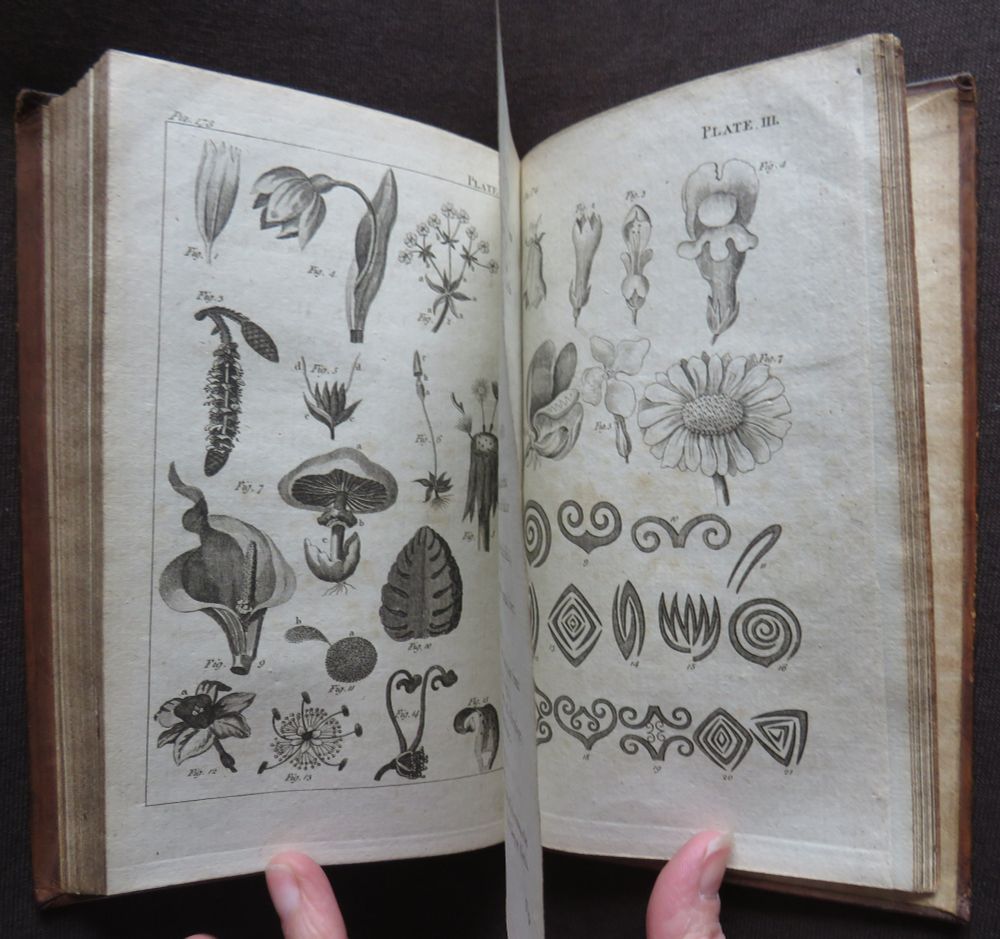 Fig. 178
PLATE
Fig. 1
Fig. 4
a
a
Fig. 2
Fig. 3
d
Fig. 5
d
c
c
Fig. 6
Fig. 7
a
b
c
Fig.
Fig. 9
Fig. 10
b
a
Fig. 11
a
Fig. 12
Fig. 13
Fig. 14
Fig. 15
PLATE. III.
Fig. 3
Fig. 4
Fig. 5
Fig. 7
9
10
11
13
14
15
16
18
19
20
21